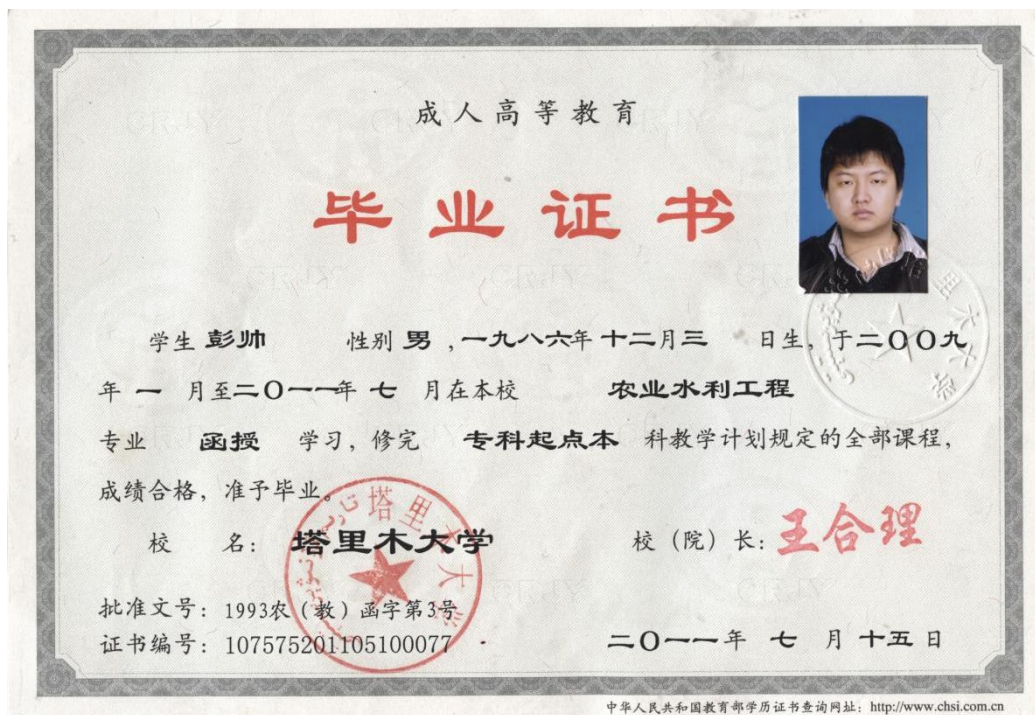 成人高等教育
毕业证书
学生 彭帅 性别 男 ,一九八六年 十二月三 日生, 于二〇〇九
年 一 月至二〇一一年 七 月在本校 农业水利工程
专业 函授 学习, 修完 专科起点本 科教学计划规定的全部课程,
成绩合格, 准予毕业。
校 名: 塔里木大学 校 (院) 长: 王合理
塔里木大学
批准文号: 1993农(教)函字第3号
证书编号: 107575201105100077 二〇一一年 七 月 十五 日
中华人民共和国教育部学历证书查询网址: http://www.chsi.com.cn